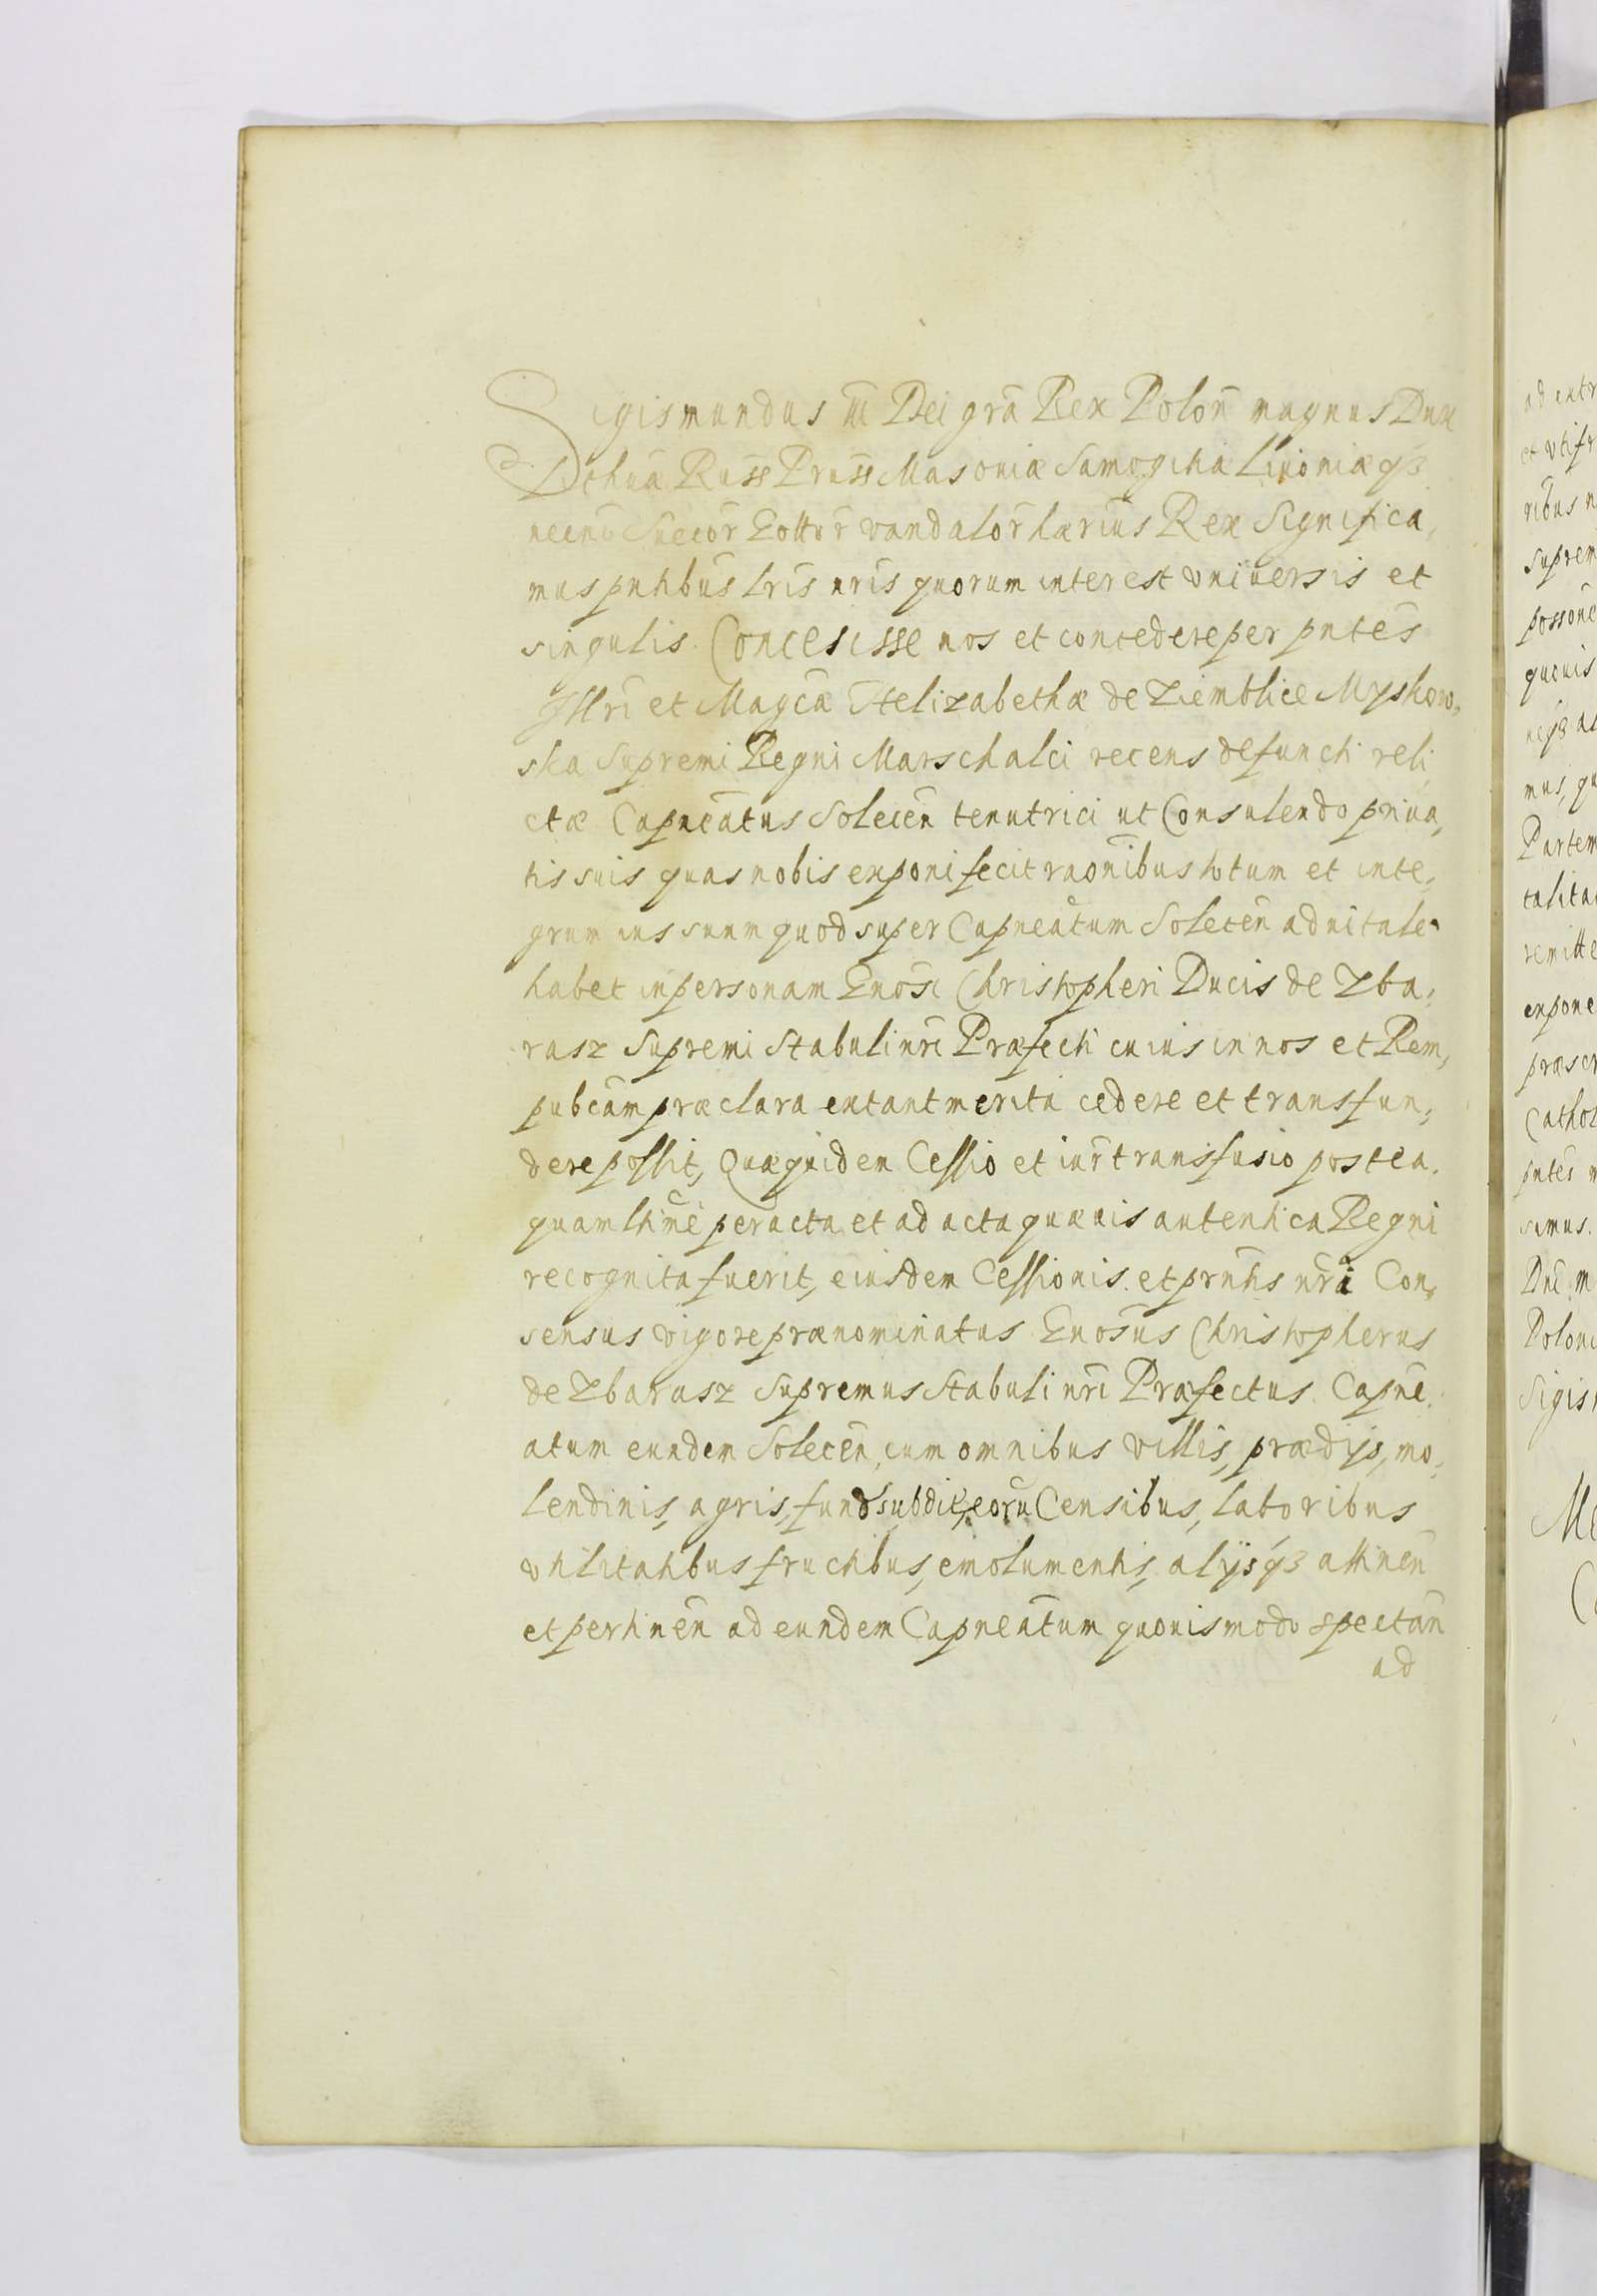 Sigismundus III Dei grã Rex Polon̄ magnus Dux
Lithuã Russ̄ Pruss̄ Masoviæ Samogitiã Livoniæqȝ
necnō Suecōr Gottōr Vandalōr hærius Rex Significa,
mus pntibus lris nris quorum interest vniuersis et
singulis. Concesisse nos et concedere per pntes
Jllri et Magcæ Helizabethæ de Ziemblice Myskow,
ska Supremi Regni Marschalci recens defuncti reli
ctæ Capneatus Solecen̄ tenutrici ut Consulendo priua,
tis suis quas nobis exponi fecit raonibus totum et inte,
grum ius suum quod super Capneatum Solecen̄ aduitale
habet in personam Gnosi Christopheri Ducis de Zba,
rasz Supremi Stabuli nri Præfecti cuius in nos et Rem,
pubcam præclara extant merita cedere et transfun,
dere possit, Quæquidem Cessio et iur̄ transfusio postea,
quam lthme peracta et ad acta quæuis autentica Regni
recognita fuerit, eiusdem Cessionis. et prntis nri Con,
sensus vigore prænominatus Gnosus Christopherus
de Zbarasz Supremus Stabuli nri Præfectus. Capne,
atum eundem Solecen̄, cum omnibus villis, prædijs, mo,
lendinis, agris, fund subdit, eorū Censibus, laboribus
vtilitatibus fructibus, emolumentis, alijsqȝ attinen̄
et pertinen̄ ad eundem Capneatum quouismodo spectan̄
ad
ad extr
et vtifr
ribus n
suprem
possone
quouis
neqȝ al
mus, qu
Partem
talita
remitte
expone
præscr
Cathol
pntes m
sumus.
Dni m
Poloni
Sigis